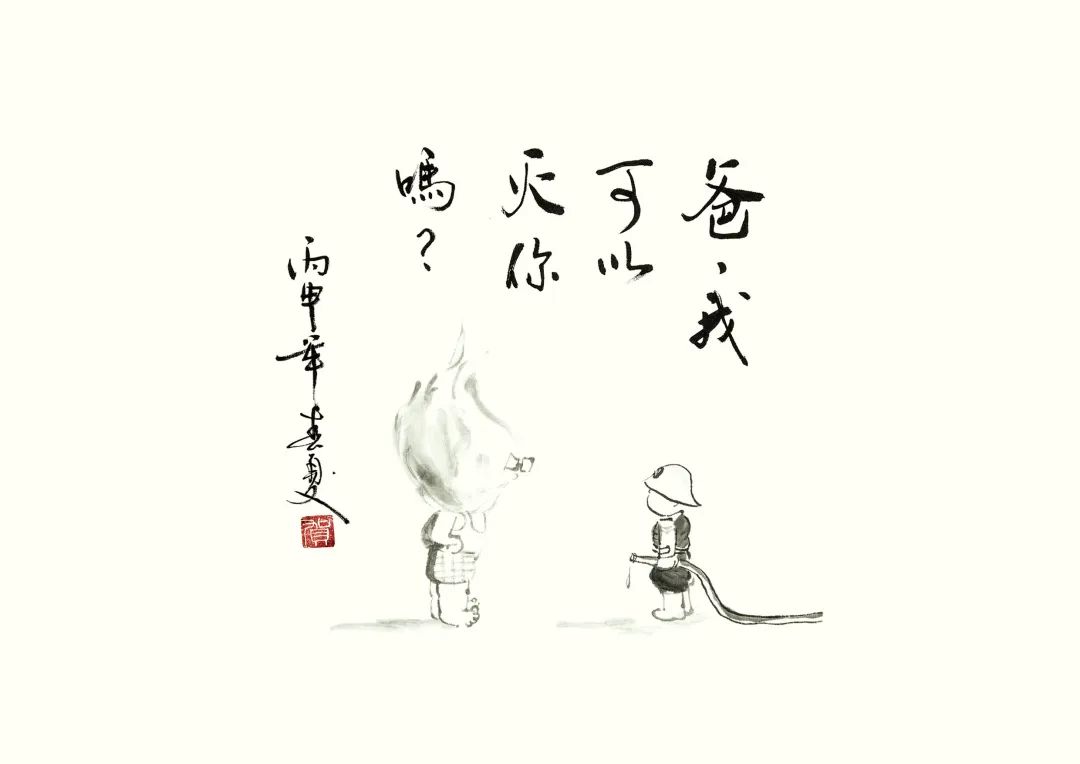 爸，我
可以
灭你
嗎？
丙申年春夏
賀